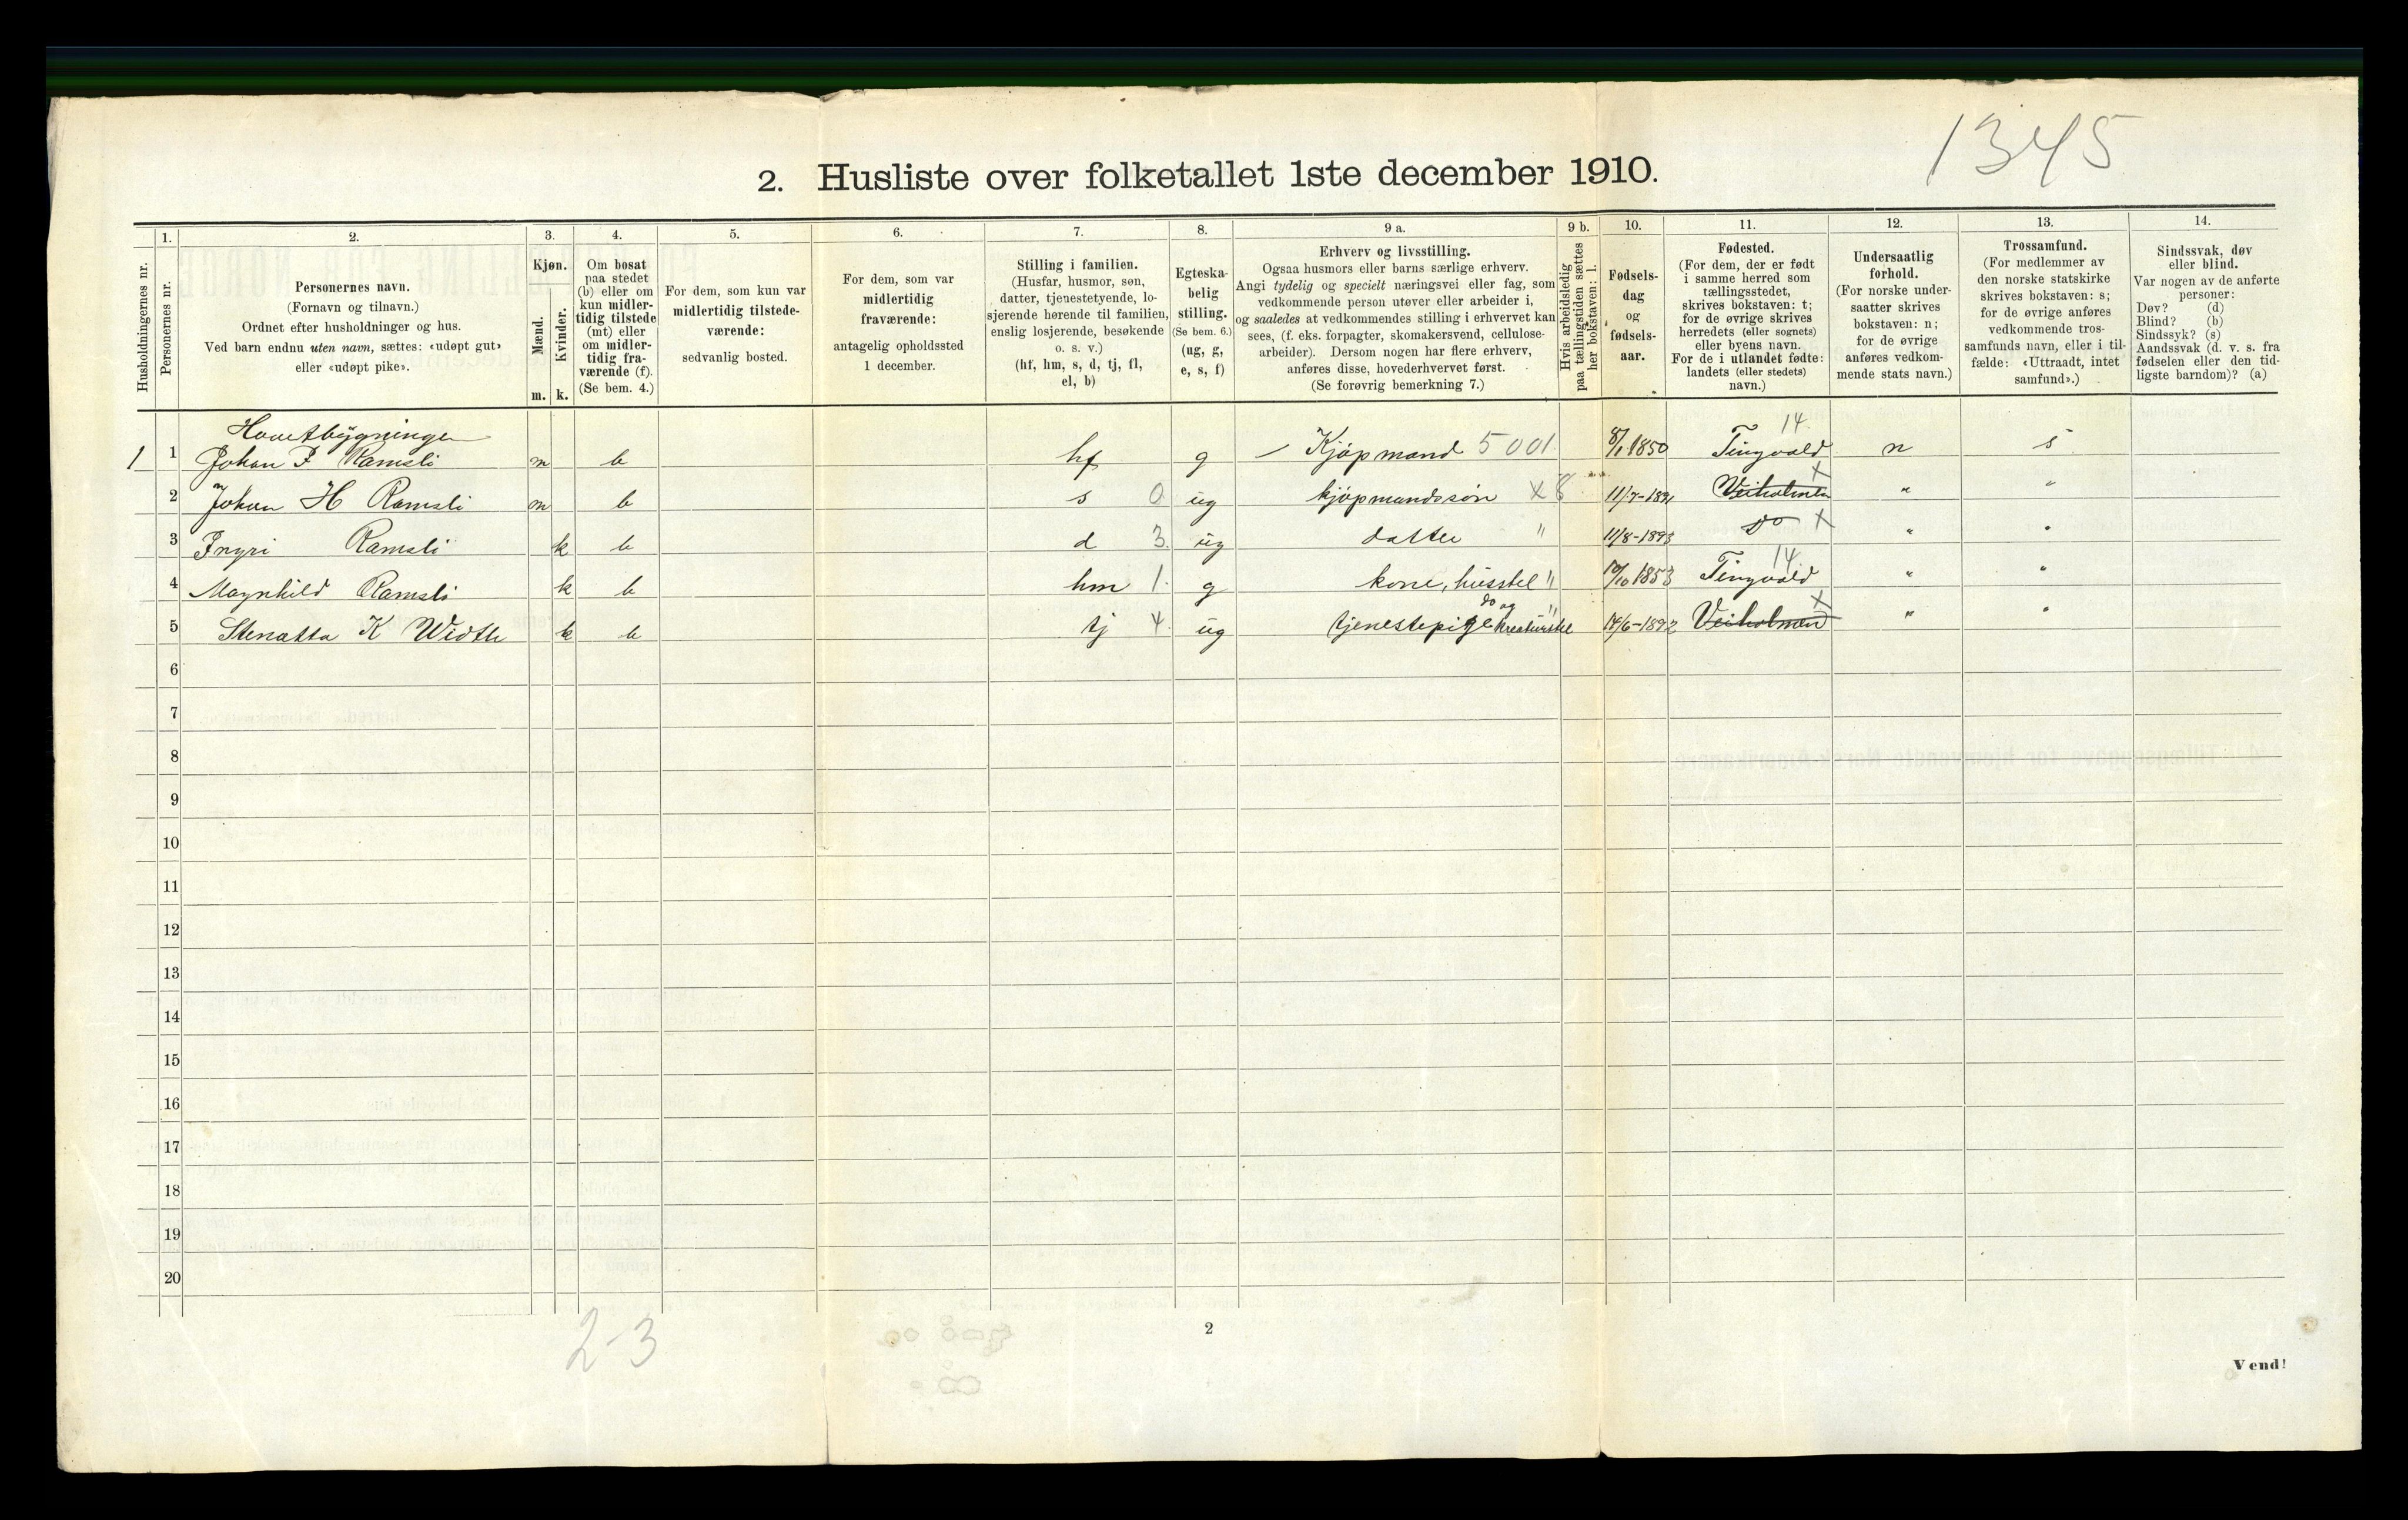 1345
2. Husliste over folketallet 1ste december 1910.
Husholdningernes nr.
1.
Personernes nr.
2.
Personernes navn.
(Fornavn og tilnavn.)
Ordnet efter husholdninger og hus.
Ved barn endnu uten navn, sættes: «udøpt gut»
eller «udøpt pike».
3.
Kjøn.
Mænd.
Kvinder.
m. k.
4.
Om bosat
paa stedet
(b) eller om
kun midler-
tidig tilstede
(mt) eller
om midler-
tidig fra-
værende (f).
(Se bem. 4.)
5.
For dem, som kun var
midlertidig tilstede-
værende:
sedvanlig bosted.
6.
For dem, som var
midlertidig
fraværende:
antagelig opholdssted
1 december.
7.
Stilling i familien.
(Husfar, husmor, søn,
datter, tjenestetyende, lo-
sjerende hørende til familien,
enslig losjerende, besøkende
o. s. v.)
(hf, hm, s, d, tj, fl,
el, b)
8.
Egteska-
belig
stilling.
(Se bem. 6.)
(ug, g,
e, s, f)
9 a.
Erhverv og livsstilling.
Ogsaa husmors eller barns særlige erhverv.
Angi tydelig og specielt næringsvei eller fag, som
vedkommende person utøver eller arbeider i,
og saaledes at vedkommendes stilling i erhvervet kan
sees, (f. eks. forpagter, skomakersvend, cellulose-
arbeider). Dersom nogen har flere erhverv,
anføres disse, hovederhvervet først.
(Se forøvrig bemerkning 7.)
9 b.
Hvis arbeidsledig
paa tællingstiden sættes
her bokstaven: l.
10.
Fødsels-
dag
og
fødsels-
aar.
11.
Fødested.
(For dem, der er født
i samme herred som
tællingsstedet,
skrives bokstaven: t;
for de øvrige skrives
herredets (eller sognets)
eller byens navn.
For de i utlandet fødte:
landets (eller stedets)
navn.)
12.
Undersaatlig
forhold.
(For norske under-
saatter skrives
bokstaven: n;
for de øvrige
anføres vedkom-
mende stats navn.)
13.
Trossamfund.
(For medlemmer av
den norske statskirke
skrives bokstaven: s;
for de øvrige anføres
vedkommende tros-
samfunds navn, eller i til-
fælde: «Uttraadt, intet
samfund».)
14.
Sindssvak, døv
eller blind.
Var nogen av de anførte
personer:
Døv? (d)
Blind? (b)
Sindssyk? (s)
Aandssvak (d. v. s. fra
fødselen eller den tid-
ligste barndom)? (a)
14
1 1 Johan P Ramsli m b hf g Kjøpmand 5001 8/1 1850 Tingvold n s
2 Johan H Ramsli m b s 0 ug kjøpmandssøn X 8 11/7-1891 Veiholmen X " "
3 Ingri Ramsli k b d 3 ug datter " 11/8-1893 Do X " "
14
4 Magnhild Ramsli k b hm 1 g kone, husstel " 10/10 1853 Tingvold " "
do og " X
5 Stenatta K Width k b tj 4 ug tjenestepige kreaturstel 14/6-1892 Veiholmen " "
6
7
8
9
10
11
12
13
14
15
16
17
18
19
20
2-3
2
Vend!